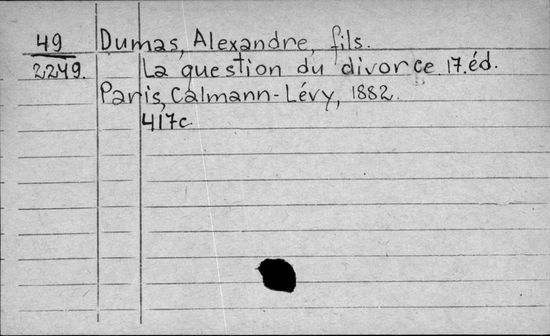 49 Dumas, Alexandre, fils.
2249. La question du divorce. 17. éd.
Paris, Calmann-Lévy, 1882.
417c.